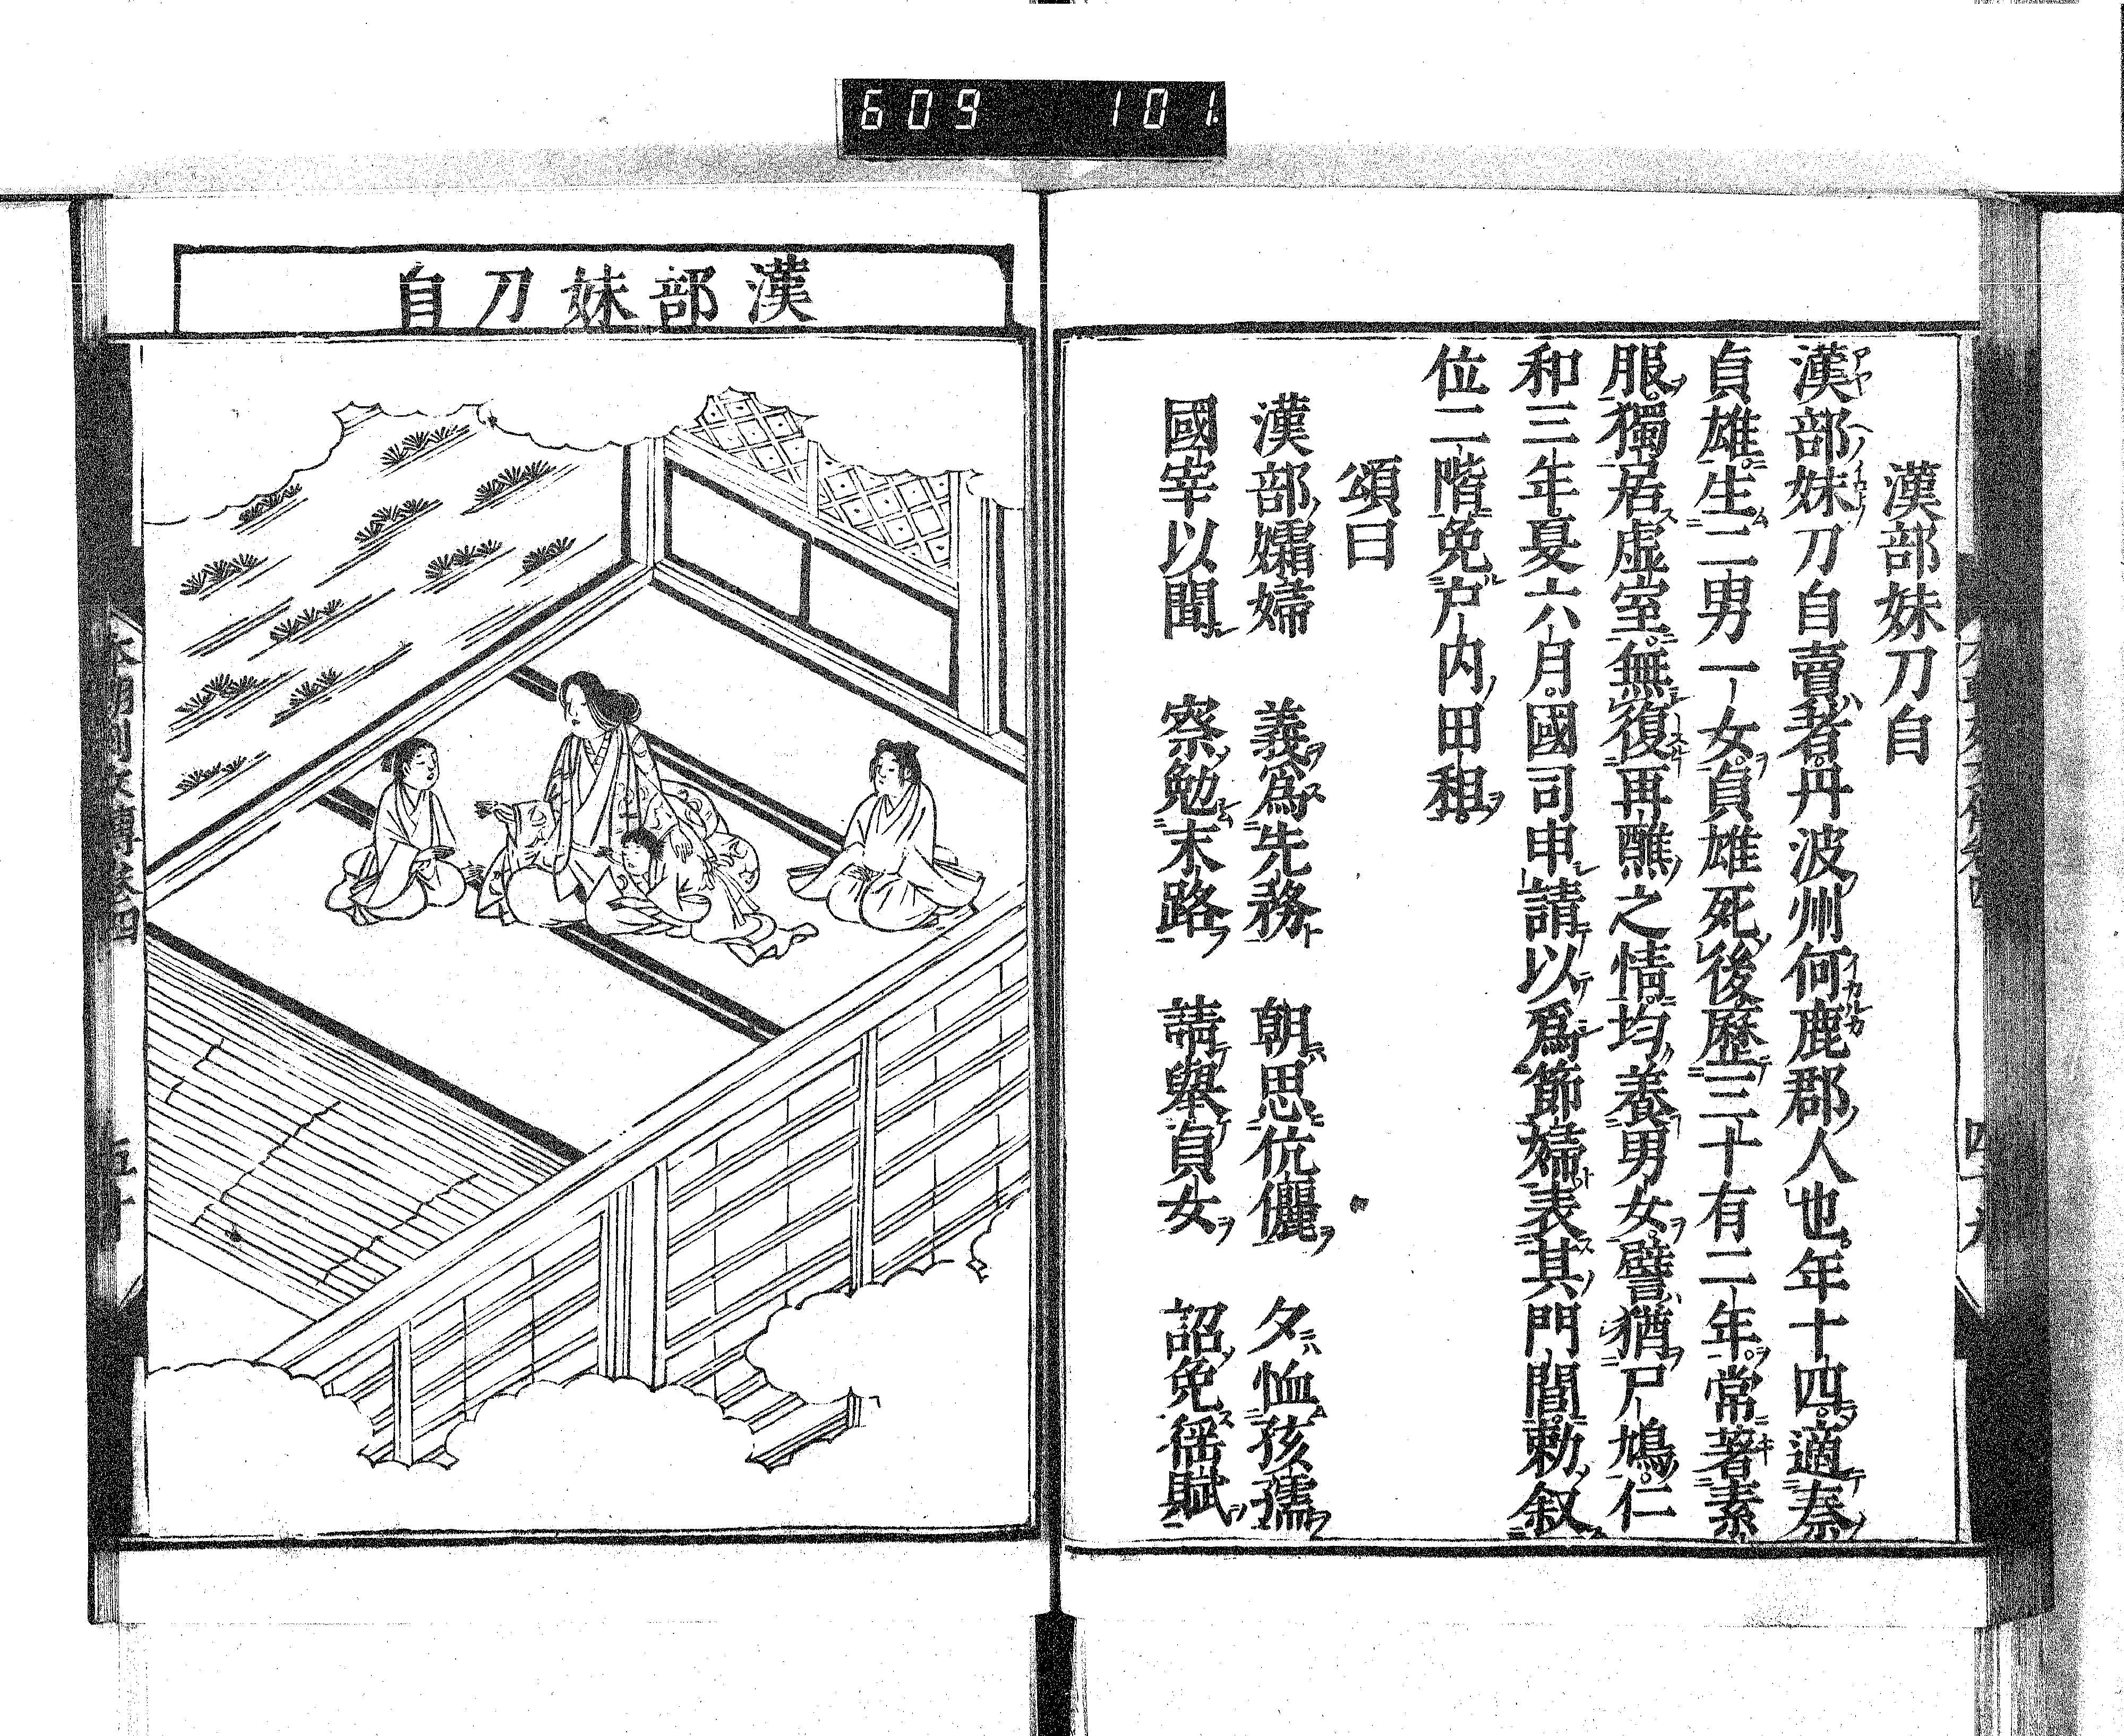 609 101
漢部妹刀自
漢部妹刀自賣者丹波州何鹿郡人也年十四適秦
貞雄生二男一女貞雄死後歷三十有二年常著素
服獨居虛室無復再醮之情均養男女譬猶尸鳩仁
和三年夏六月國司申請以爲節婦表其門閭勅叙
位二階免户内田租
頌曰
漢部孀婦 義爲先務 朝思伉儷 夕恤孩孺
國宰以聞 察勉末路 請舉貞女 詔免徭賦
漢部妹刀自